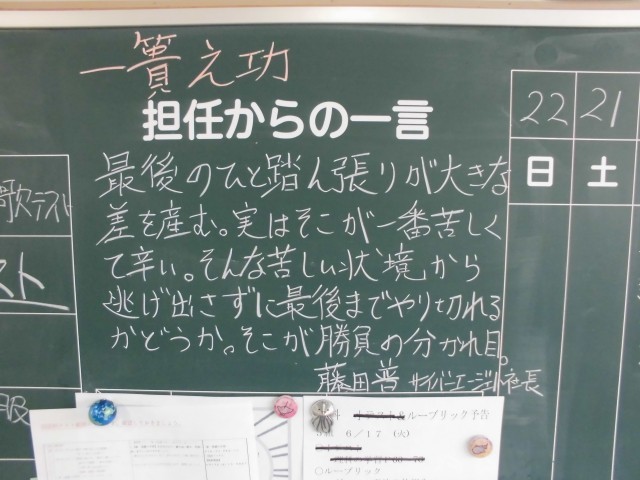 一簣之功
担任からの一言
22 21
日 土
最後のひと踏ん張りが大きな
差を産む。実はそこが一番苦しく
て辛い。そんな苦しい状境から
逃げ出さずに最後までやり切れる
かどうか。そこが勝負の分かれ目。
藤田晋 サイバーエージェント社長
歌テスト
スト
ルーブリック予告
6/17 (火)
○ルーブリック